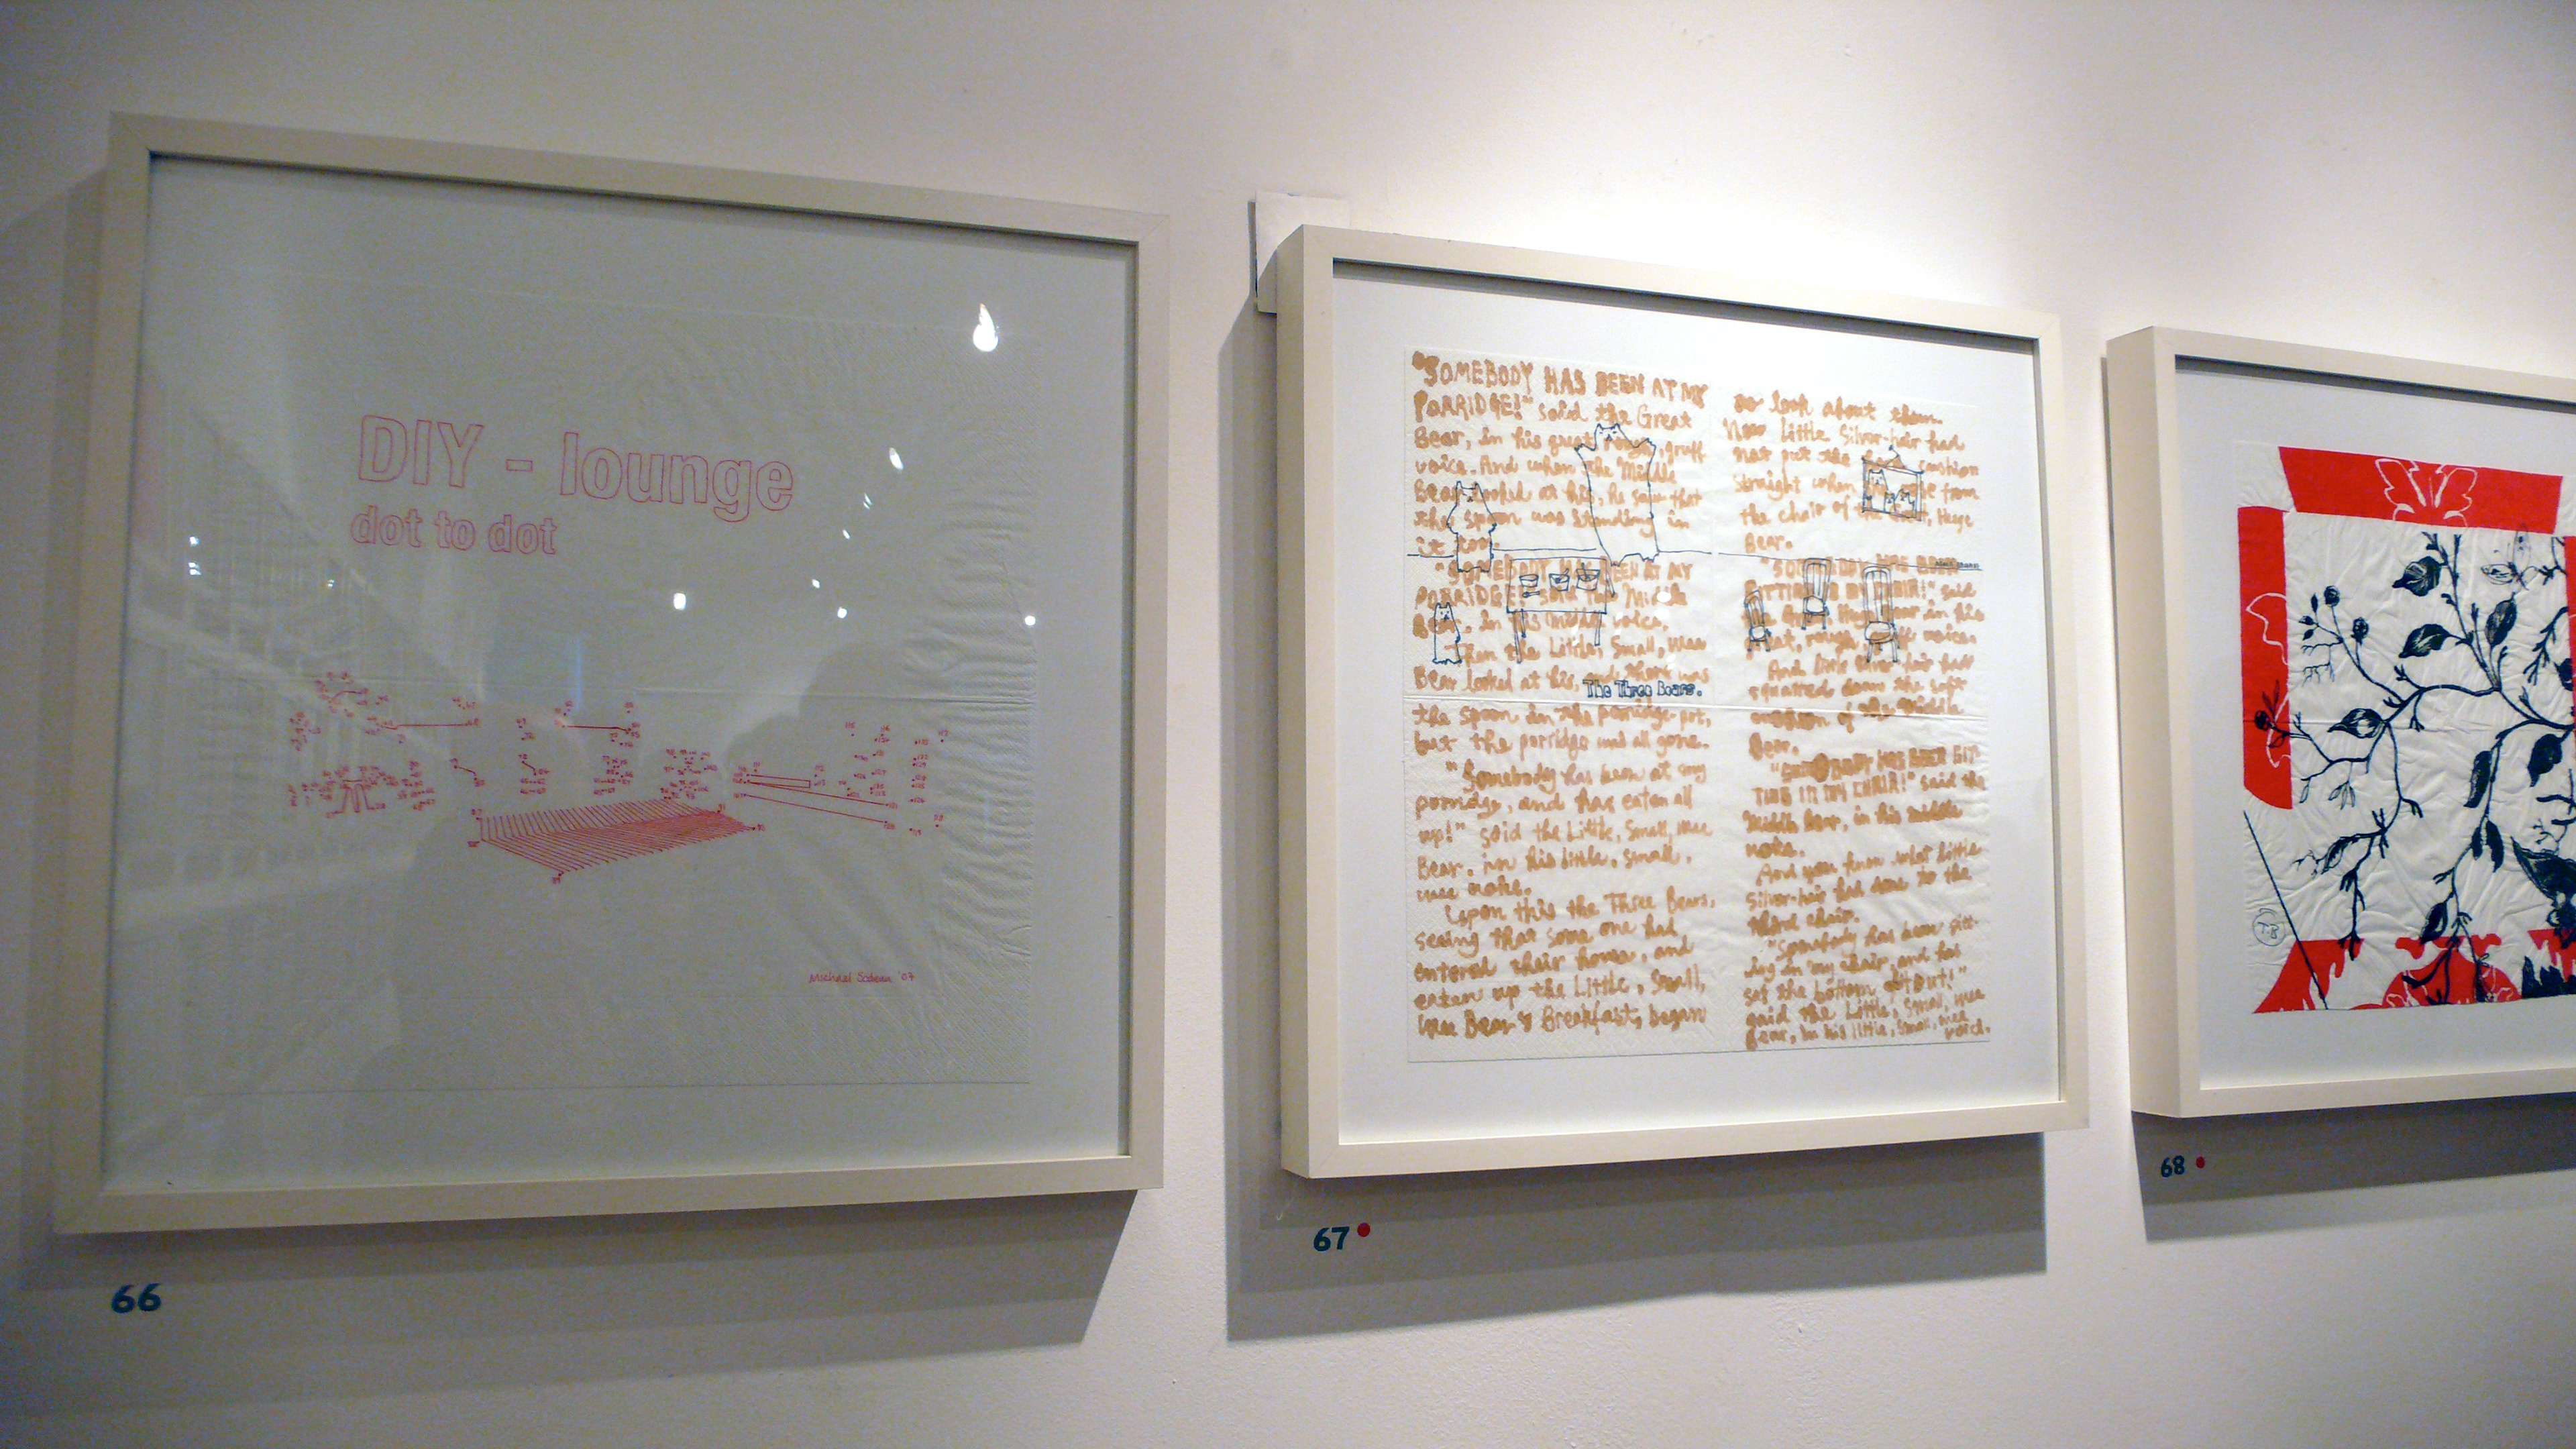 DIY - lounge
dot to dot
Michael Sodeau '07
66
"SOMEBODY HAS BEEN AT MY
PORRIDGE!" said the Great
Bear, in his great rough, gruff
voice. And when the Middle
Bear looked at his, he saw that
the spoon was standing in
it too.
"SOMEBODY HAS BEEN AT MY
PORRIDGE!" said the Middle
Bear, in his middle voice.
Then the Little, Small, Wee
Bear looked at his, and there was
The Three Bears.
the spoon in the porridge-pot,
but the porridge was all gone.
"Somebody has been at my
porridge, and has eaten all
up!" said the Little, Small, Wee
Bear, in his little, small,
wee voice.
Upon this the Three Bears,
seeing that some one had
entered their house, and
eaten up the Little, Small,
Wee Bear's Breakfast, began
to look about them.
Now Little Silver-hair had
not put the hard cushion
straight when from
the chair of the Huge
Bear.
"SOMEBODY HAS BEEN
SITTING IN MY CHAIR!" said
the Great Huge Bear in his
great, rough, gruff voice.
And little Silver-hair had
squatted down the soft
cushion of the Middle
Bear.
"SOMEBODY HAS BEEN SIT-
TING IN MY CHAIR!" said the
Middle Bear, in his middle
voice.
And you know what little
Silver-hair had done to the
third chair.
"Somebody has been sitt-
ing in my chair, and has
sat the bottom of it out!"
said the Little, Small, Wee
Bear, in his little, small, wee
voice.
67
T.B
68